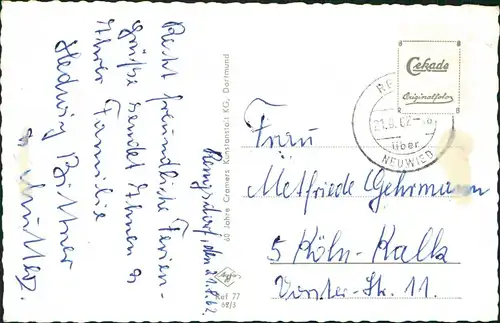 Recht freundliche Ferien-
grüße sendet Ihnen &
Ihrer Familie
Hedwig Büttner
& Mutter.
Rengsdorf, den 21.8.62.
60 Jahre Cramers Kunstanstalt KG, Dortmund
Cekade
Originalfoto
21.8.62
über
NEUWIED
Frau
Metfriede Gehrmann
5 Köln-Kalk
Vorster-Str. 11.
77
62/3